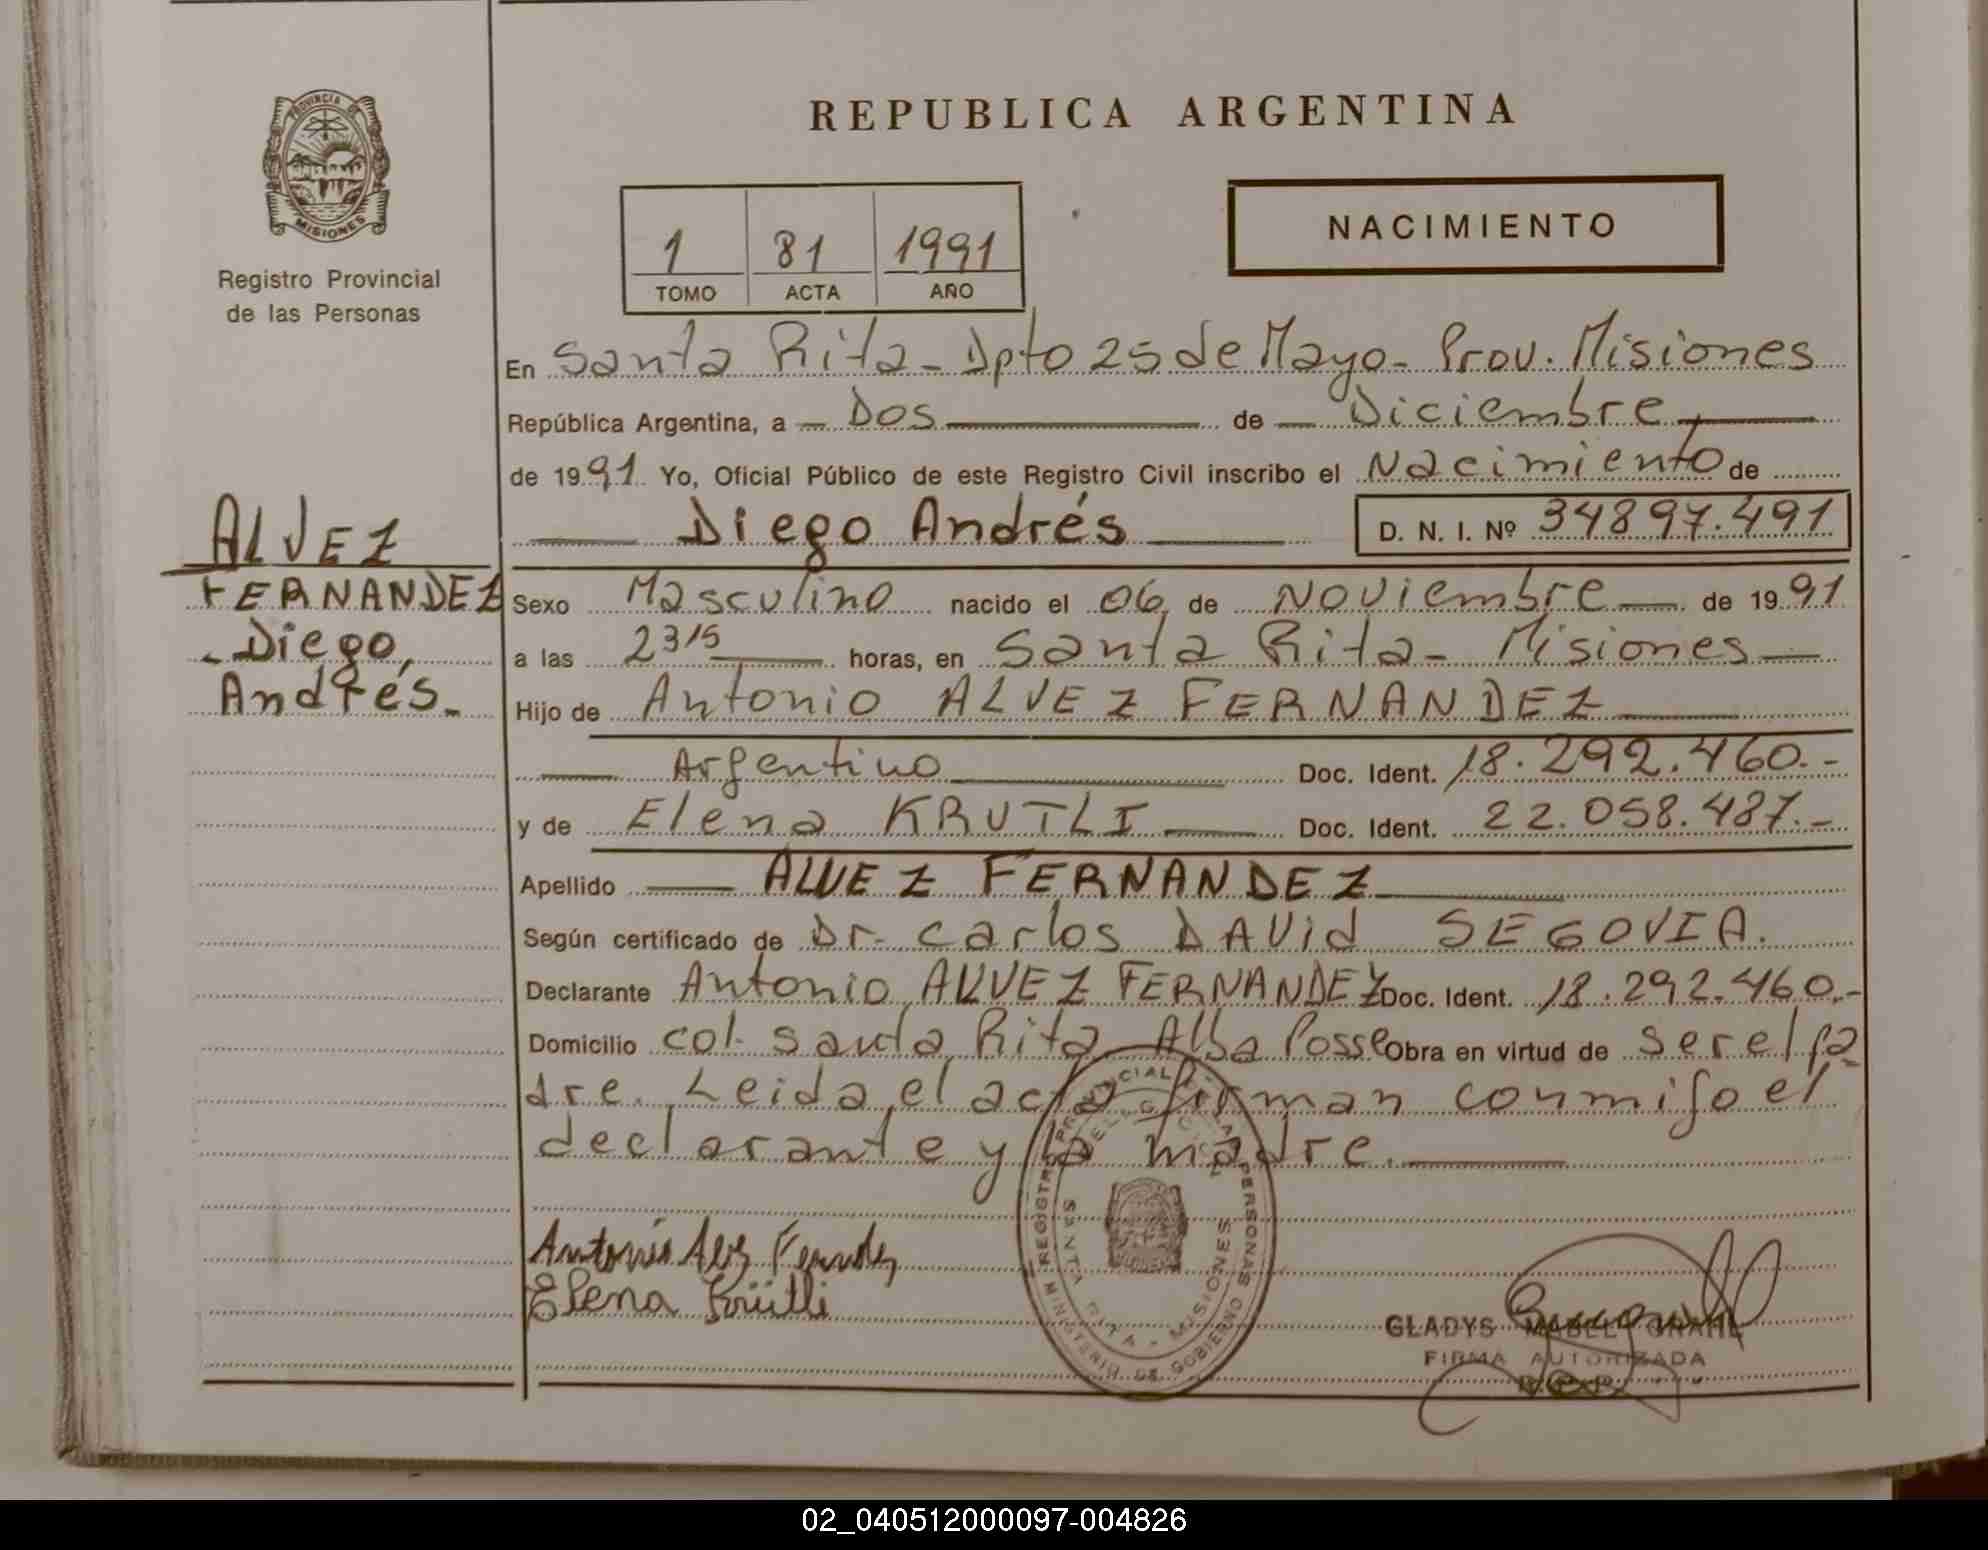 REPUBLICA ARGENTINA
PROVINCIA DE
MISIONES
Registro Provincial
de las Personas
1 81 1991
TOMO ACTA AÑO
NACIMIENTO
En Santa Rita - Dpto 25 de Mayo - Prov. Misiones
República Argentina, a - Dos de - Diciembre
de 1991 Yo, Oficial Público de este Registro Civil inscribo el Nacimiento de
Diego Andrés D. N. I. Nº 34897.491
ALVEZ
FERNANDEZ
- Diego,
Andrés.-
Sexo Masculino nacido el 06 de Noviembre de 1991
a las 2315 horas, en Santa Rita - Misiones
Hijo de Antonio ALVEZ FERNANDEZ
Argentino Doc. Ident. 18.292.460.-
y de Elena KRUTLI Doc. Ident. 22.058.487.-
Apellido ALVEZ FERNANDEZ
Según certificado de Dr. Carlos DAVId SEGOVIA.
Declarante Antonio ALVEZ FERNANDEZ Doc. Ident. 18.292.460.-
Domicilio col. Santa Rita Alba Posse Obra en virtud de ser el pa
dre. Leida el acta firman conmigo el
declarante y la madre.
Antonio Alvez Fernandez
Elena Krütli
REGISTRO PROVINCIAL DE LAS PERSONAS
SANTA RITA - MISIONES
MINISTERIO DE GOBIERNO
GLADYS MABEL GRAHL
FIRMA AUTORIZADA
R.P.P.
02_040512000097-004826